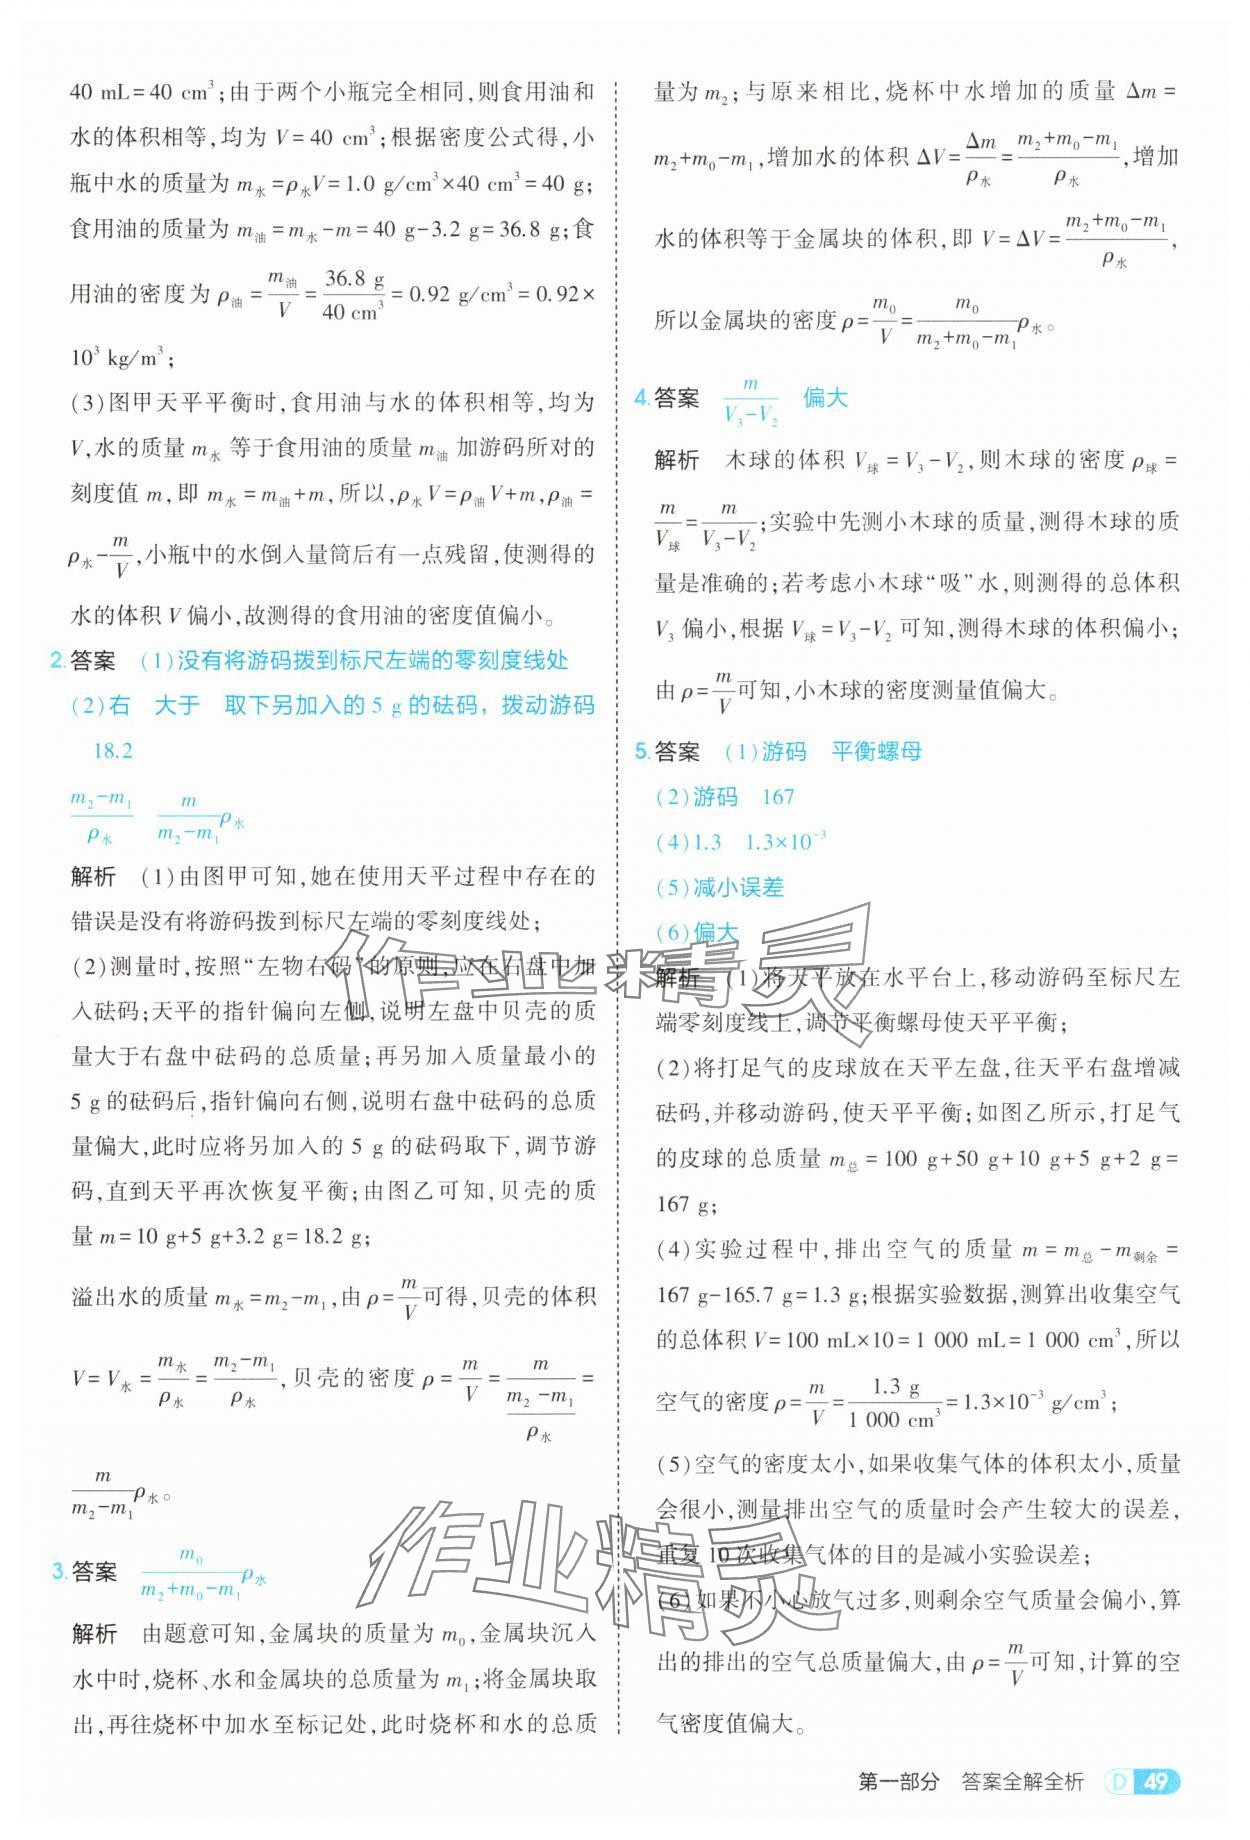 40 mL=40 cm³;由于两个小瓶完全相同,则食用油和
水的体积相等,均为 V=40 cm³;根据密度公式得,小
瓶中水的质量为 m水=ρ水V=1.0 g/cm³×40 cm³=40 g;
食用油的质量为 m油=m水-m=40 g-3.2 g=36.8 g;食
用油的密度为 ρ油=m油/V=36.8 g/40 cm³=0.92 g/cm³=0.92×
10³ kg/m³;
(3)图甲天平平衡时,食用油与水的体积相等,均为
V,水的质量 m水 等于食用油的质量 m油 加游码所对的
刻度值 m,即 m水=m油+m,所以,ρ水V=ρ油V+m,ρ油=
ρ水-m/V,小瓶中的水倒入量筒后有一点残留,使测得的
水的体积 V 偏小,故测得的食用油的密度值偏小。
2. 答案 (1)没有将游码拨到标尺左端的零刻度线处
(2)右 大于 取下另加入的 5 g 的砝码，拨动游码
18.2
(m₂-m₁)/ρ水 m/(m₂-m₁)ρ水
解析 (1)由图甲可知,她在使用天平过程中存在的
错误是没有将游码拨到标尺左端的零刻度线处;
(2)测量时,按照“左物右码”的原则,应在右盘中加
入砝码;天平的指针偏向左侧,说明左盘中贝壳的质
量大于右盘中砝码的总质量;再另加入质量最小的
5 g 的砝码后,指针偏向右侧,说明右盘中砝码的总质
量偏大,此时应将另加入的 5 g 的砝码取下,调节游
码,直到天平再次恢复平衡;由图乙可知,贝壳的质
量 m=10 g+5 g+3.2 g=18.2 g;
溢出水的质量 m水=m₂-m₁,由 ρ=m/V可得,贝壳的体积
V=V水=m水/ρ水=(m₂-m₁)/ρ水,贝壳的密度 ρ=m/V=m/((m₂-m₁)/ρ水)=
m/(m₂-m₁)ρ水。
3. 答案 m₀/(m₂+m₀-m₁)ρ水
解析 由题意可知,金属块的质量为 m₀,金属块沉入
水中时,烧杯、水和金属块的总质量为 m₁;将金属块取
出,再往烧杯中加水至标记处,此时烧杯和水的总质
量为 m₂;与原来相比,烧杯中水增加的质量 Δm=
m₂+m₀-m₁,增加水的体积 ΔV=Δm/ρ水=(m₂+m₀-m₁)/ρ水,增加
水的体积等于金属块的体积,即 V=ΔV=(m₂+m₀-m₁)/ρ水,
所以金属块的密度 ρ=m₀/V=m₀/(m₂+m₀-m₁)ρ水。
4. 答案 m/(V₃-V₂) 偏大
解析 木球的体积 V球=V₃-V₂,则木球的密度 ρ球=
m/V球=m/(V₃-V₂);实验中先测小木球的质量,测得木球的质
量是准确的;若考虑小木球“吸”水,则测得的总体积
V₃ 偏小,根据 V球=V₃-V₂ 可知,测得木球的体积偏小;
由 ρ=m/V可知,小木球的密度测量值偏大。
5. 答案 (1)游码 平衡螺母
(2)游码 167
(4)1.3 1.3×10⁻³
(5)减小误差
(6)偏大
解析 (1)将天平放在水平台上,移动游码至标尺左
端零刻度线上,调节平衡螺母使天平平衡;
(2)将打足气的皮球放在天平左盘,往天平右盘增减
砝码,并移动游码,使天平平衡;如图乙所示,打足气
的皮球的总质量 m总=100 g+50 g+10 g+5 g+2 g=
167 g;
(4)实验过程中,排出空气的质量 m=m总-m剩余=
167 g-165.7 g=1.3 g;根据实验数据,测算出收集空气
的总体积 V=100 mL×10=1 000 mL=1 000 cm³,所以
空气的密度 ρ=m/V=1.3 g/1 000 cm³=1.3×10⁻³ g/cm³;
(5)空气的密度太小,如果收集气体的体积太小,质量
会很小,测量排出空气的质量时会产生较大的误差,
重复 10 次收集气体的目的是减小实验误差;
(6)如果不小心放气过多,则剩余空气质量会偏小,算
出的排出的空气总质量偏大,由 ρ=m/V可知,计算的空
气密度值偏大。
作业精灵
作业精灵
第一部分 答案全解全析 D 49